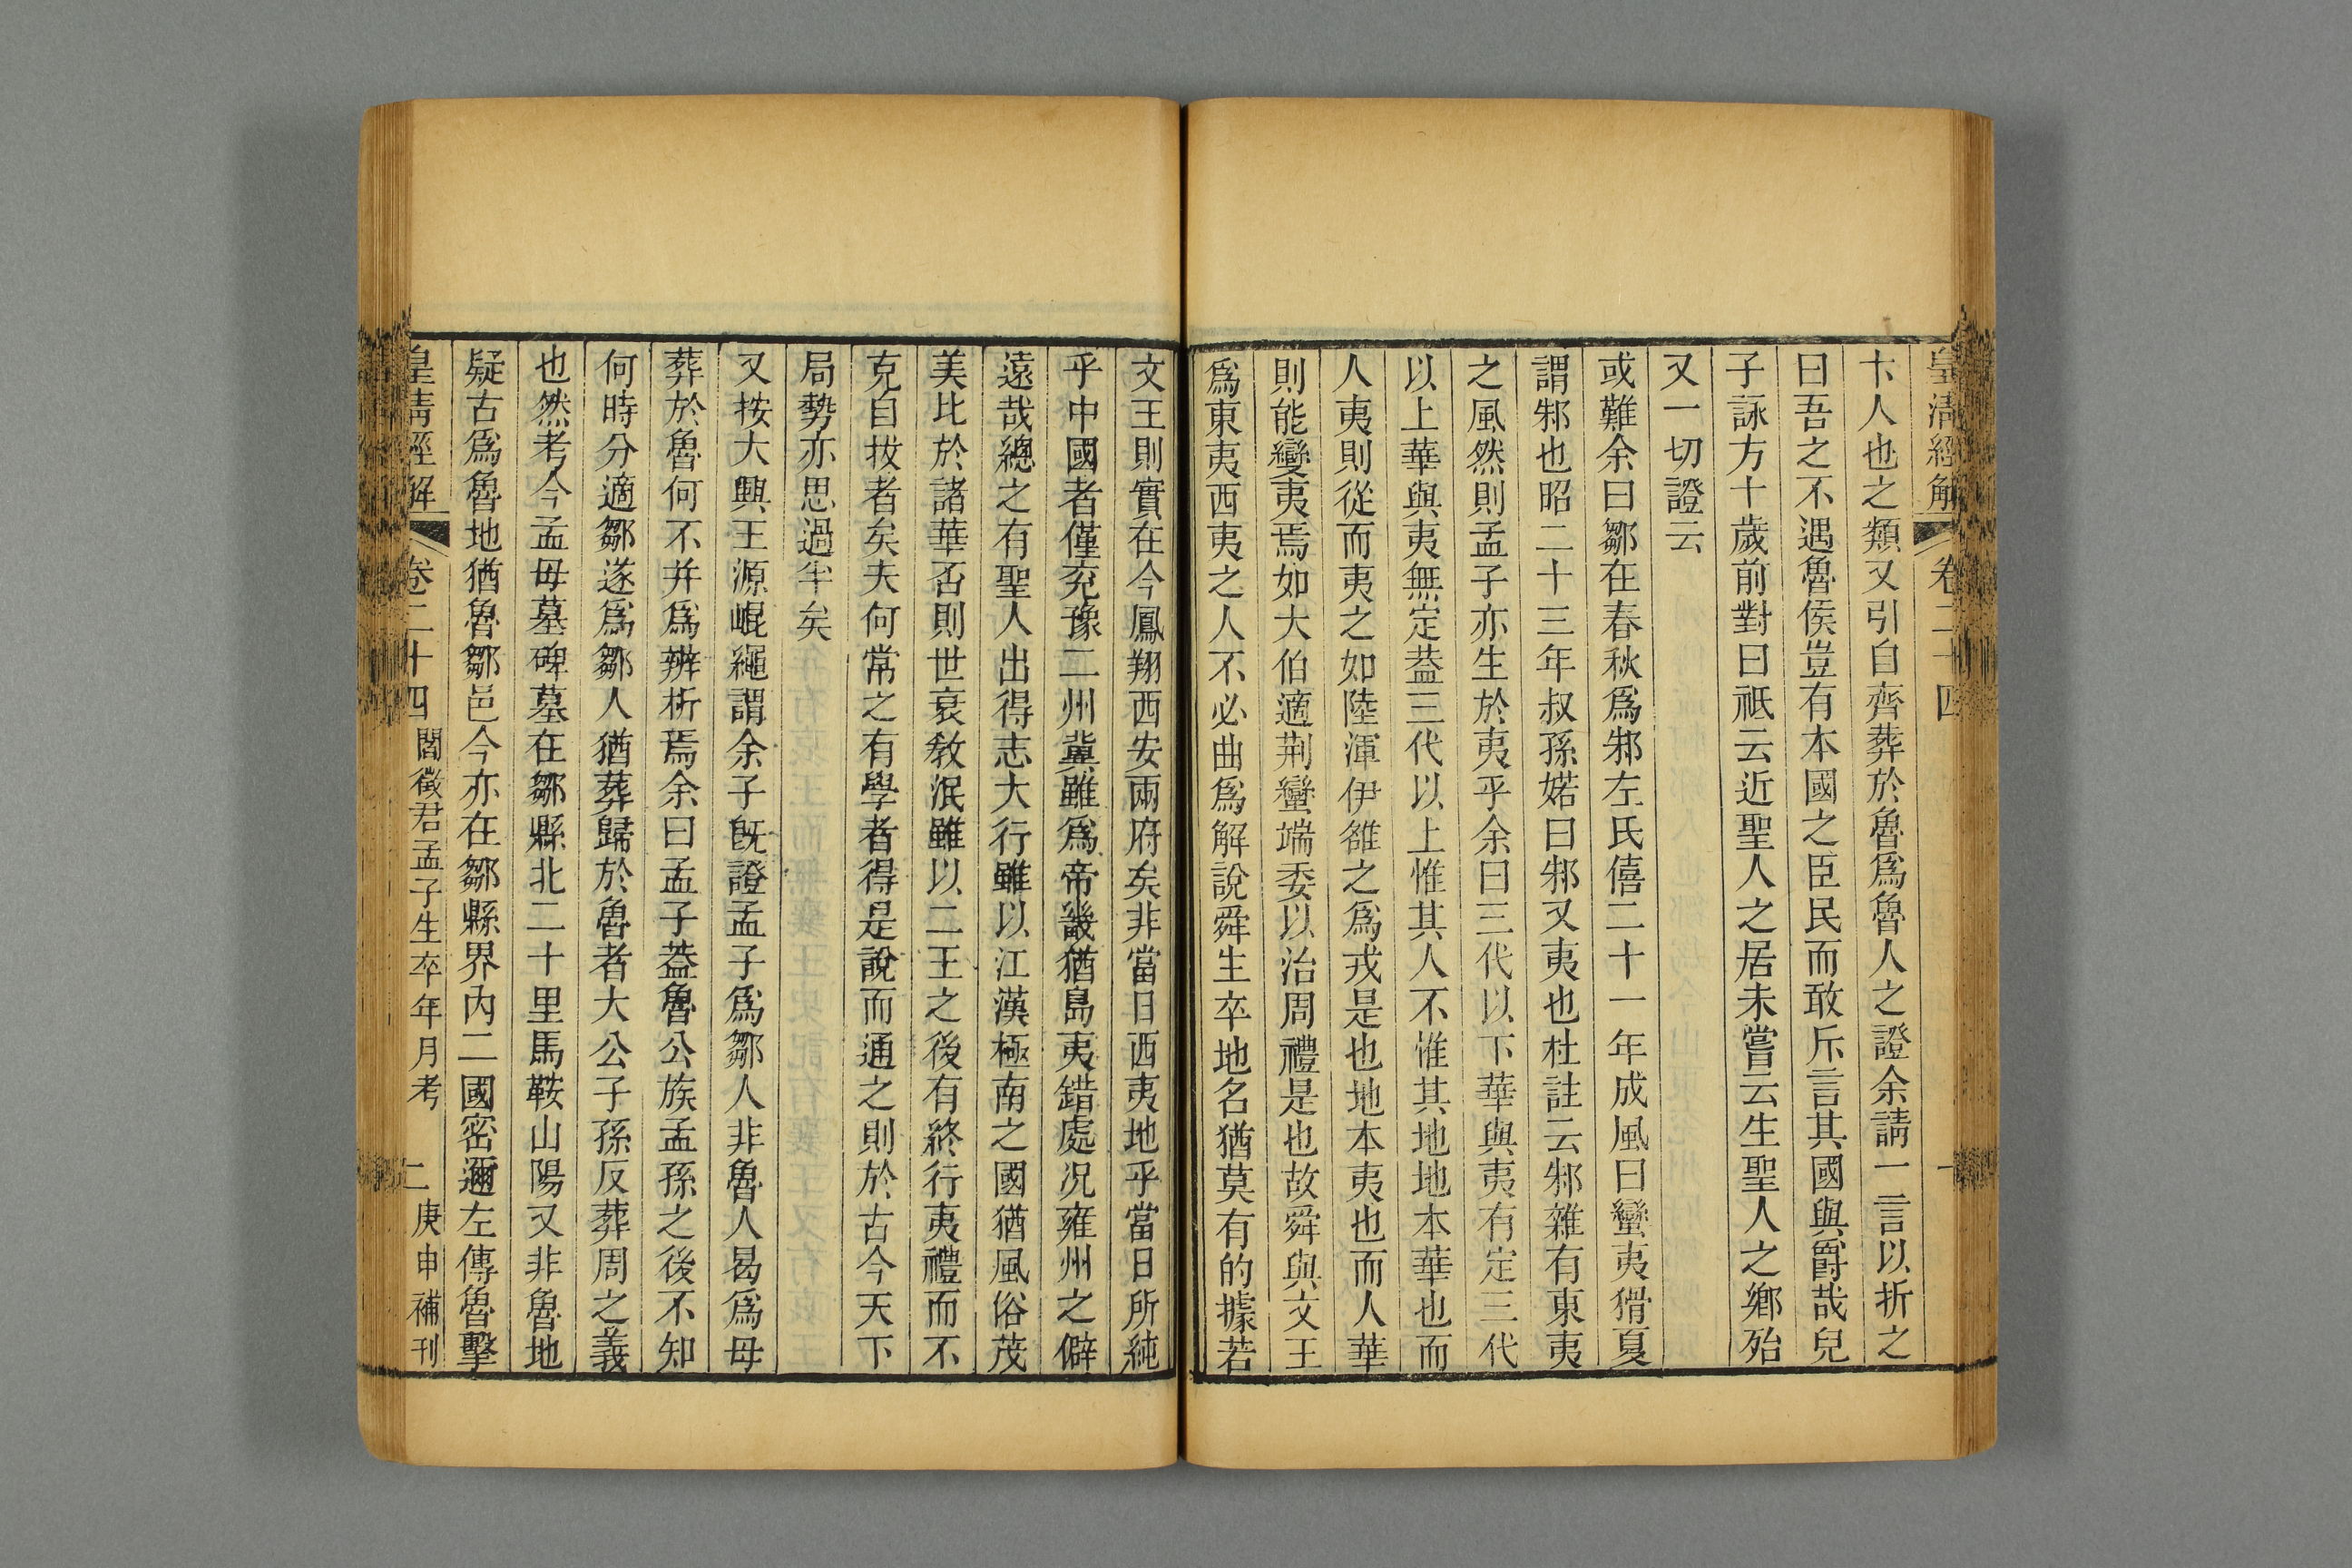 皇清經解 卷二十四 一
卞人也之類又引自齊葬於魯爲魯人之證余請一言以折之
曰吾之不遇魯侯豈有本國之臣民而敢斥言其國與爵哉兒
子詠方十歲前對曰祇云近聖人之居未嘗云生聖人之鄉殆
又一切證云
或難余曰鄒在春秋爲邾左氏僖二十一年成風曰蠻夷猾夏
謂邾也昭二十三年叔孫婼曰邾又夷也杜註云邾雜有東夷
之風然則孟子亦生於夷乎余曰三代以下華與夷有定三代
以上華與夷無定葢三代以上惟其人不惟其地地本華也而
人夷則從而夷之如陸渾伊雒之爲戎是也地本夷也而人華
則能變夷焉如大伯適荆蠻端委以治周禮是也故舜與文王
爲東夷西夷之人不必曲爲解說舜生卒地名猶莫有的據若
文王則實在今鳳翔西安兩府矣非當日西夷地乎當日所純
乎中國者僅兖豫二州冀雖爲帝畿猶島夷錯處况雍州之僻
遠哉總之有聖人出得志大行雖以江漢極南之國猶風俗茂
美比於諸華否則世衰敎泯雖以二王之後有終行夷禮而不
克自拔者矣夫何常之有學者得是說而通之則於古今天下
局勢亦思過半矣
又按大興王源崐繩謂余子旣證孟子爲鄒人非魯人曷爲母
葬於魯何不幷爲辨析焉余曰孟子葢魯公族孟孫之後不知
何時分適鄒遂爲鄒人猶葬歸於魯者大公子孫反葬周之義
也然考今孟母墓碑墓在鄒縣北二十里馬鞍山陽又非魯地
疑古爲魯地猶魯鄒邑今亦在鄒縣界內二國密邇左傳魯擊
皇清經解 卷二十四 閻徵君孟子生卒年月考 二 庚申補刊